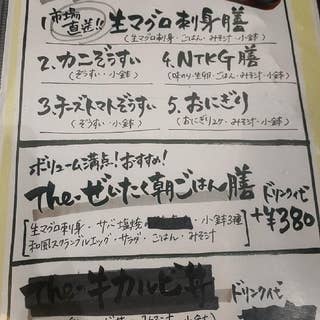 市場直送!!
1. 生マグロ刺身膳
(生マグロ刺身・ごはん・みそ汁・小鉢)
2. カニぞうすい
(ぞうすい・小鉢)
4. NTKG膳
(味のり・生卵・ごはん・みそ汁・小鉢)
3. チーズトマトぞうすい
(ぞうすい・小鉢)
5. おにぎり
(おにぎり2ケ・みそ汁・小鉢)
ボリューム満点!おすすめ!
The・ぜいたく朝ごはん膳
ドリンク代
+¥380
生マグロ刺身・サバ塩焼・小鉢3種
和風スクランブルエッグ・サラダ・ごはん・みそ汁
The・牛カルビ丼
ドリンク代